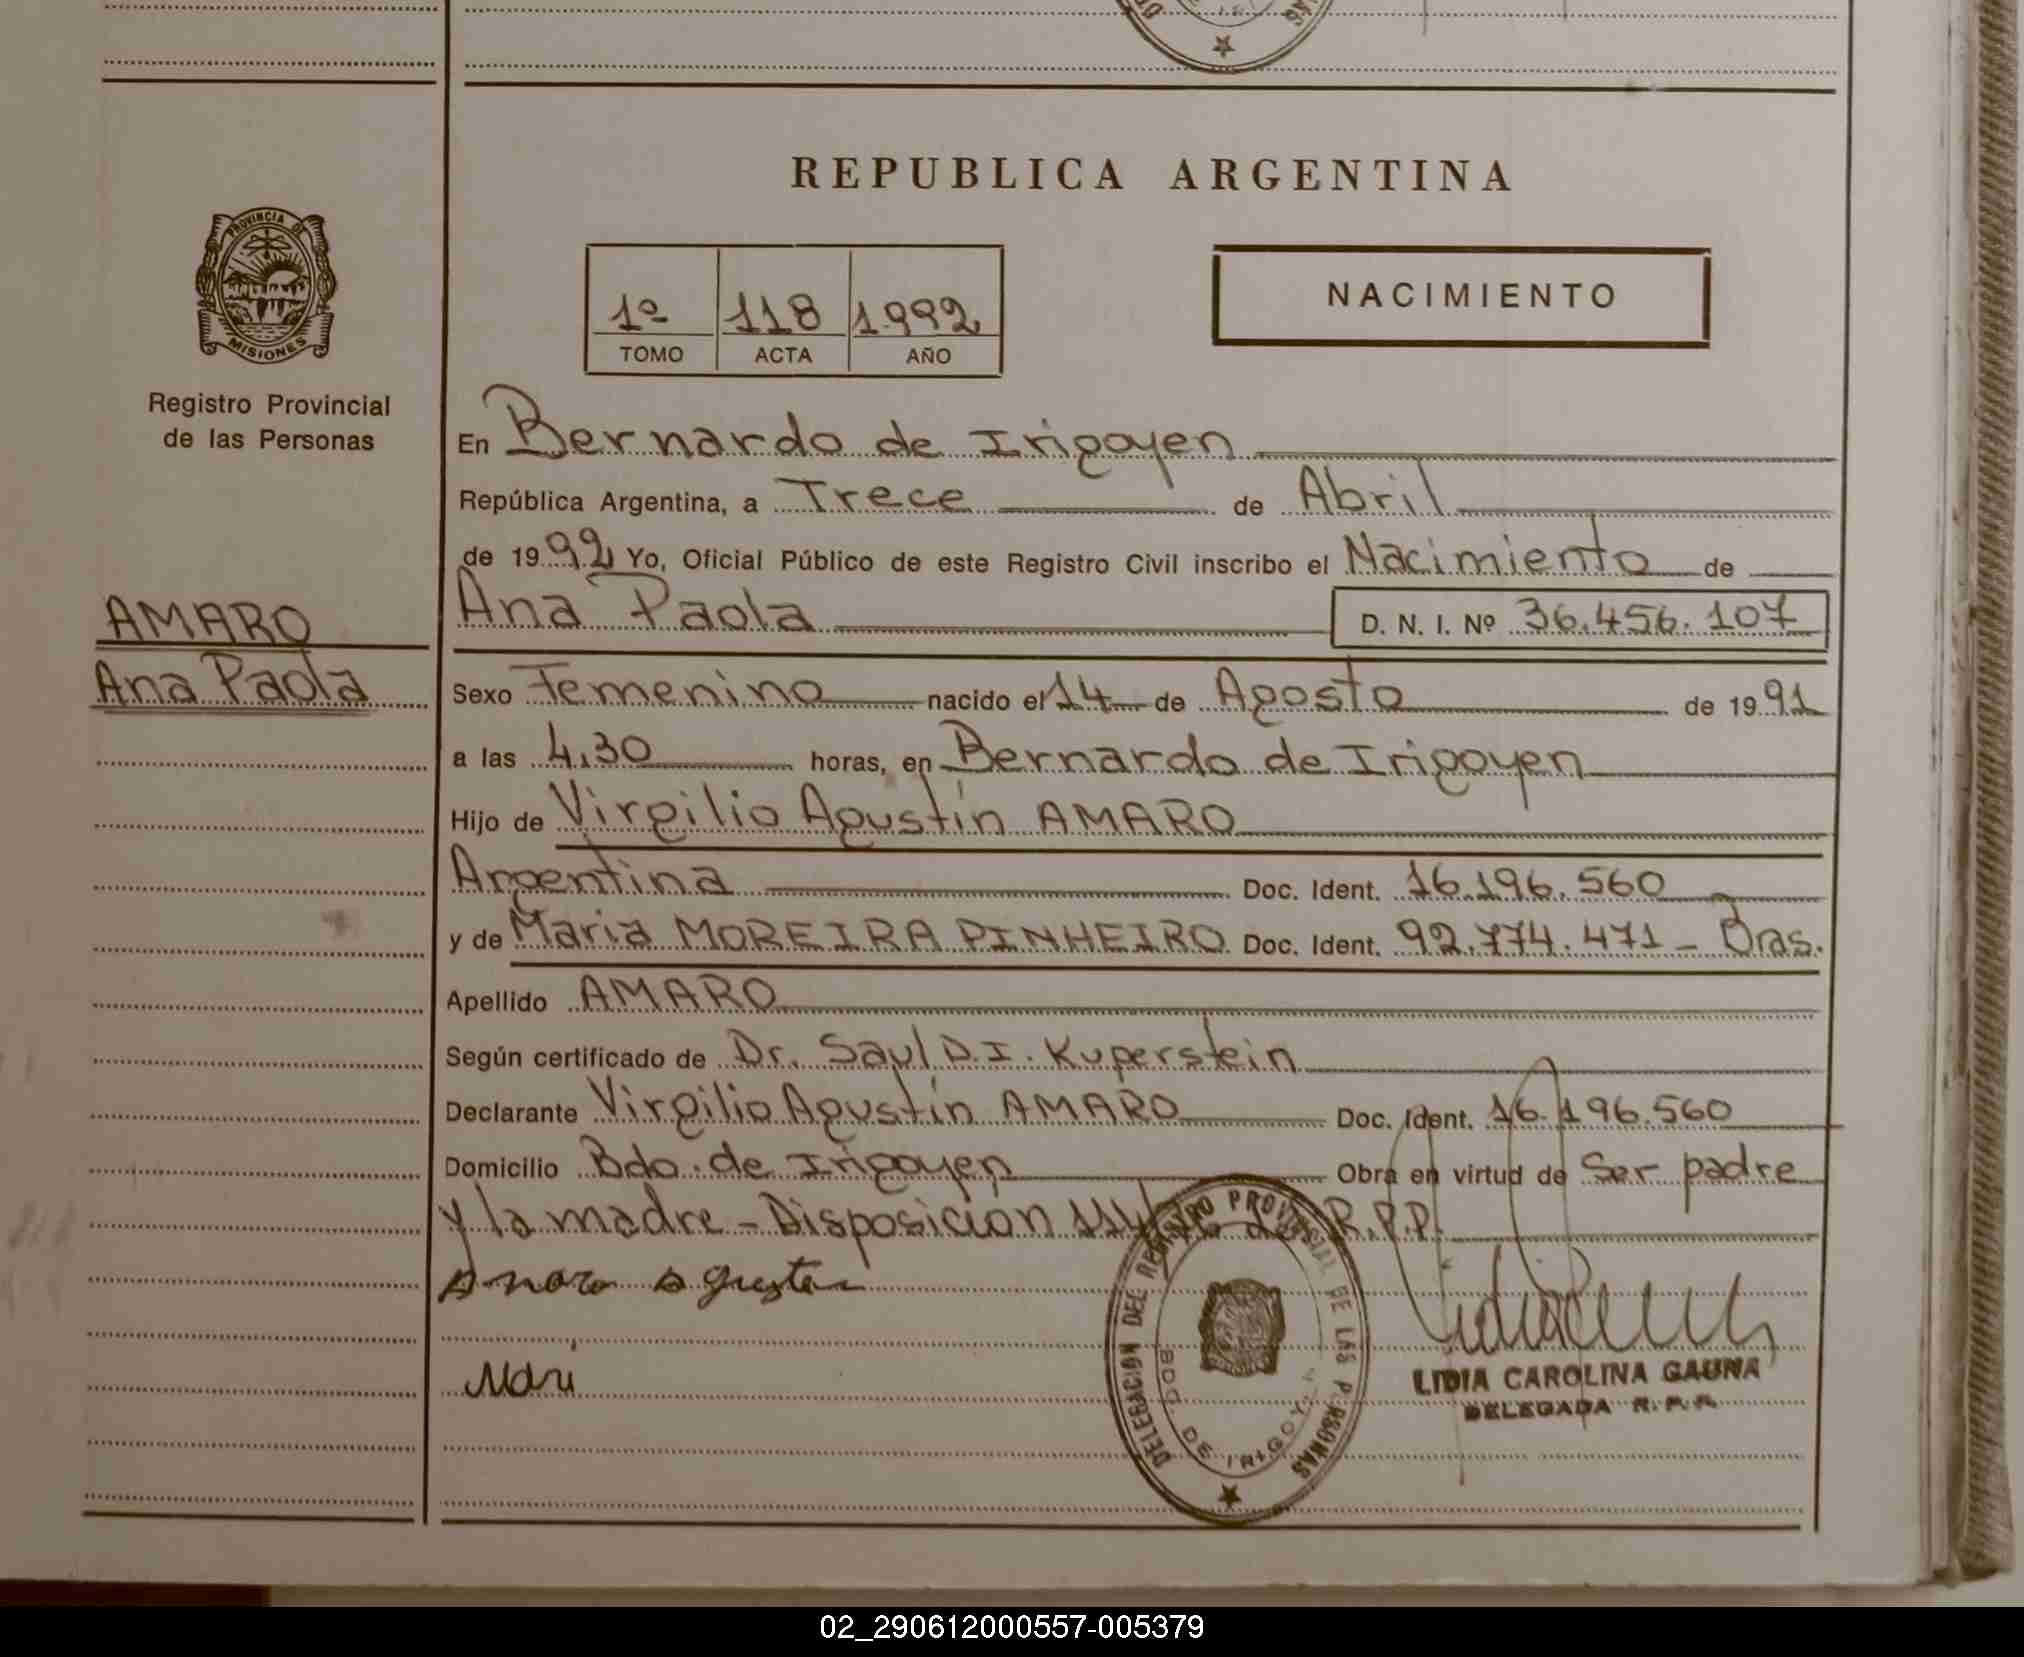 REPUBLICA ARGENTINA
PROVINCIA DE
MISIONES
Registro Provincial
de las Personas
1º 118 1992
TOMO ACTA AÑO
NACIMIENTO
En Bernardo de Irigoyen
República Argentina, a Trece de Abril
de 1992 Yo, Oficial Público de este Registro Civil inscribo el Nacimiento de
AMARO
Ana Paola
Ana Paola D. N. I. Nº 36.456.107
Sexo Femenino nacido el 14 de Agosto de 1991
a las 4,30 horas, en Bernardo de Irigoyen
Hijo de Virgilio Agustín AMARO
Argentina Doc. Ident. 16.196.560
y de Maria MOREIRA PINHEIRO Doc. Ident. 92.774.471 - Bras.
Apellido AMARO
Según certificado de Dr. Saul D.I. Kuperstein
Declarante Virgilio Agustín AMARO Doc. Ident. 16.196.560
Domicilio Bdo. de Irigoyen Obra en virtud de Ser padre
y la madre - Disposicion R.P.P.
Amaro Agustin
DELEGACION DEL REGISTRO PROVINCIAL DE LAS PERSONAS
BDO DE IRIGOYEN
LIDIA CAROLINA GAUNA
DELEGADA R.P.P.
02_290612000557-005379